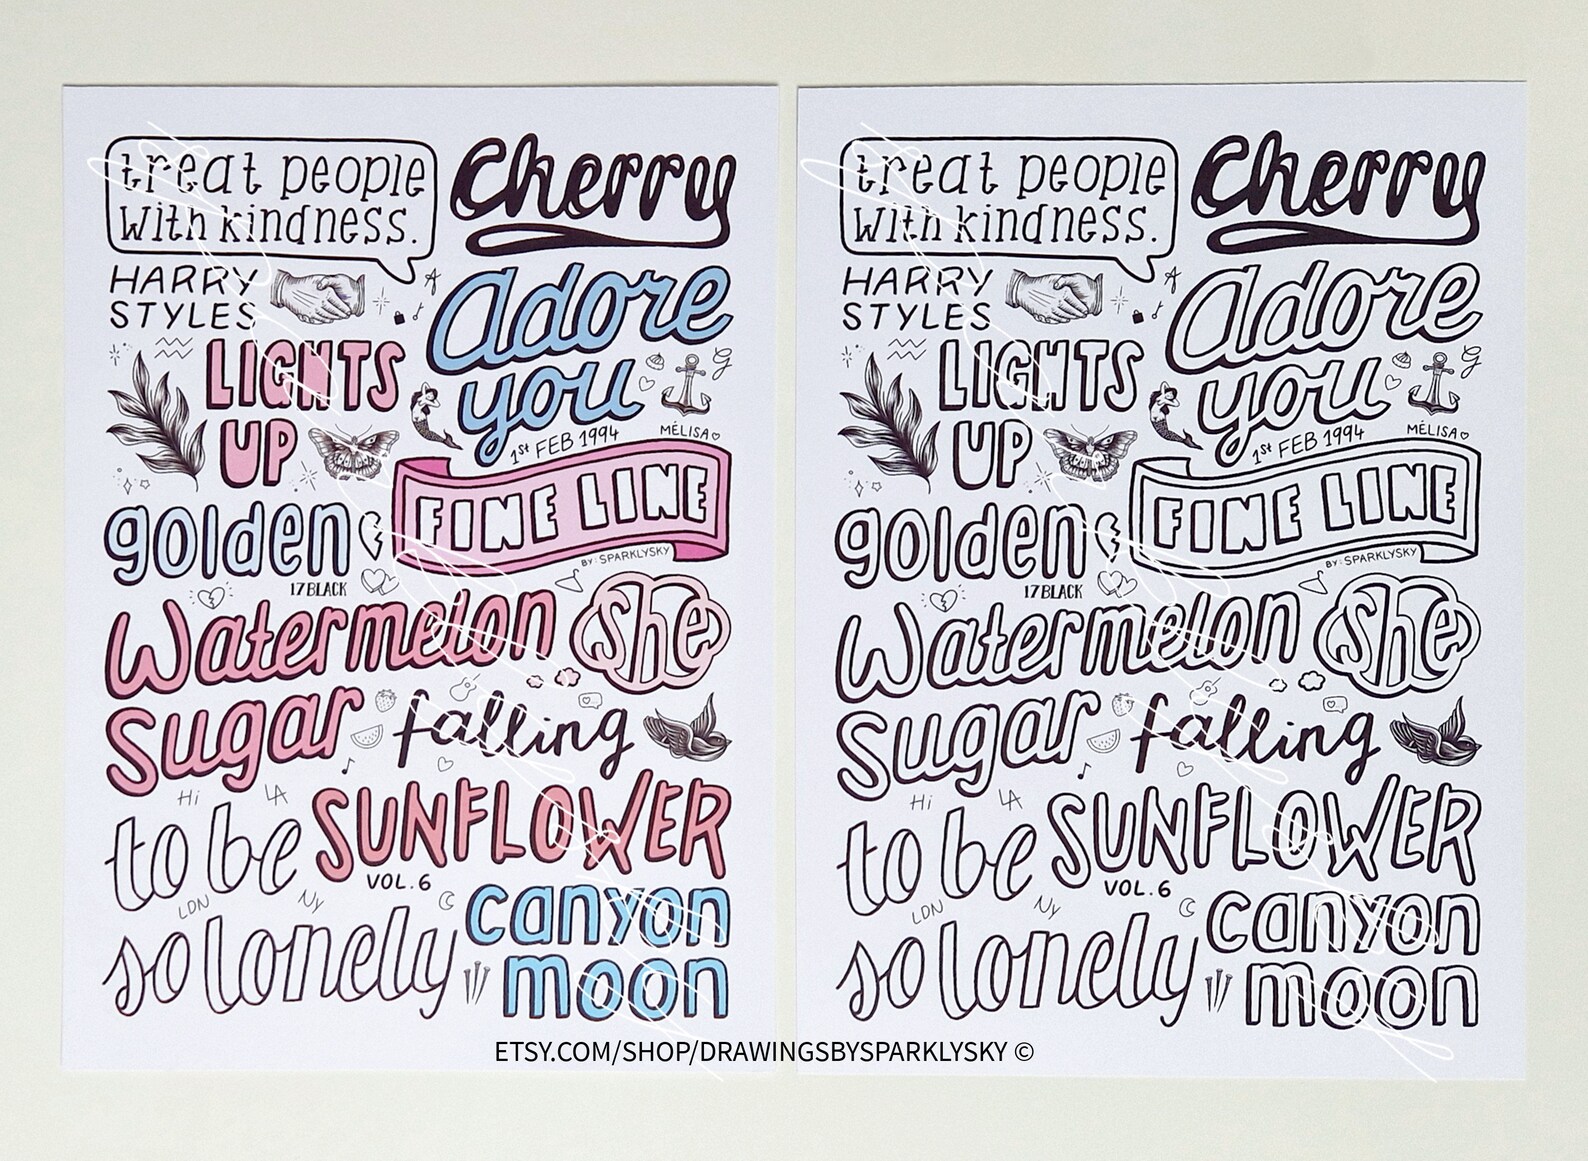 treat people
with kindness.
Cherry
HARRY
STYLES
A
Adore
you
LIGHTS
UP
G
1st FEB 1994
MÉLISA
FINE LINE
golden
BY: SPARKLYSKY
17BLACK
Watermelon
Sugar
she
falling
Hi
LA
to be
so lonely
SUNFLOWER
VOL. 6
LDN
NY
canyon
moon
treat people
with kindness.
Cherry
HARRY
STYLES
A
Adore
you
LIGHTS
UP
G
1st FEB 1994
MÉLISA
FINE LINE
golden
BY: SPARKLYSKY
17BLACK
Watermelon
Sugar
she
falling
Hi
LA
to be
so lonely
SUNFLOWER
VOL. 6
LDN
NY
canyon
moon
ETSY.COM/SHOP/DRAWINGSBYSPARKLYSKY ©